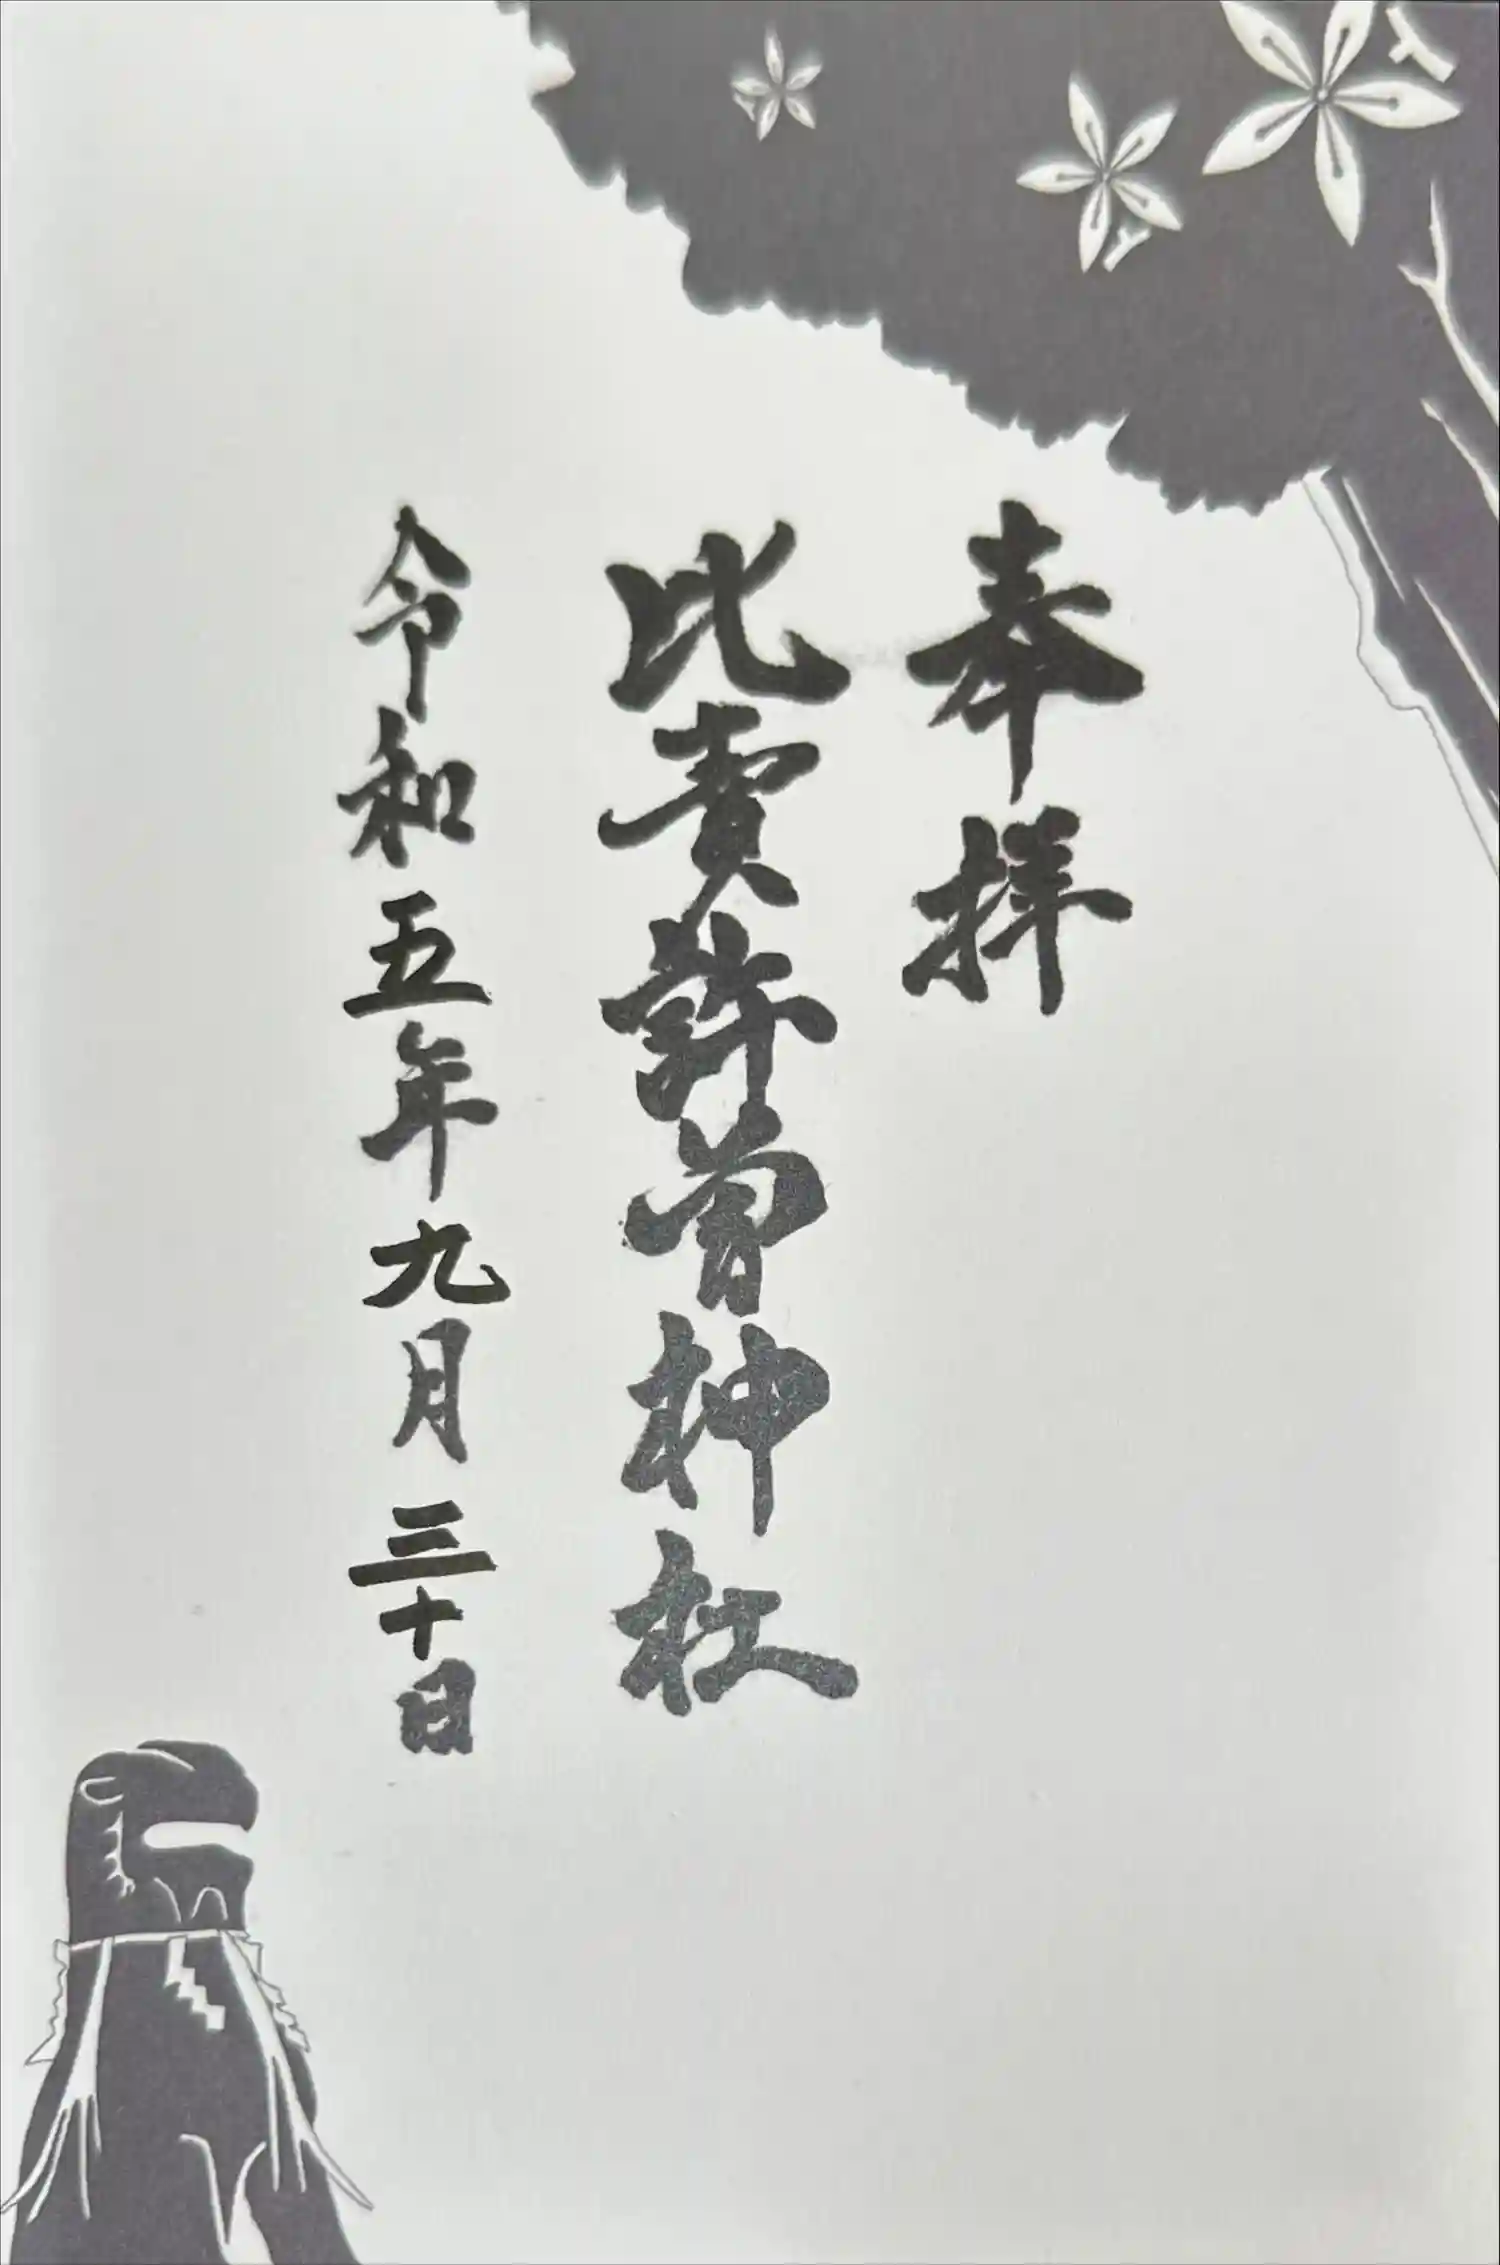 奉拝
比賣許曽神社
令和五年九月三十日